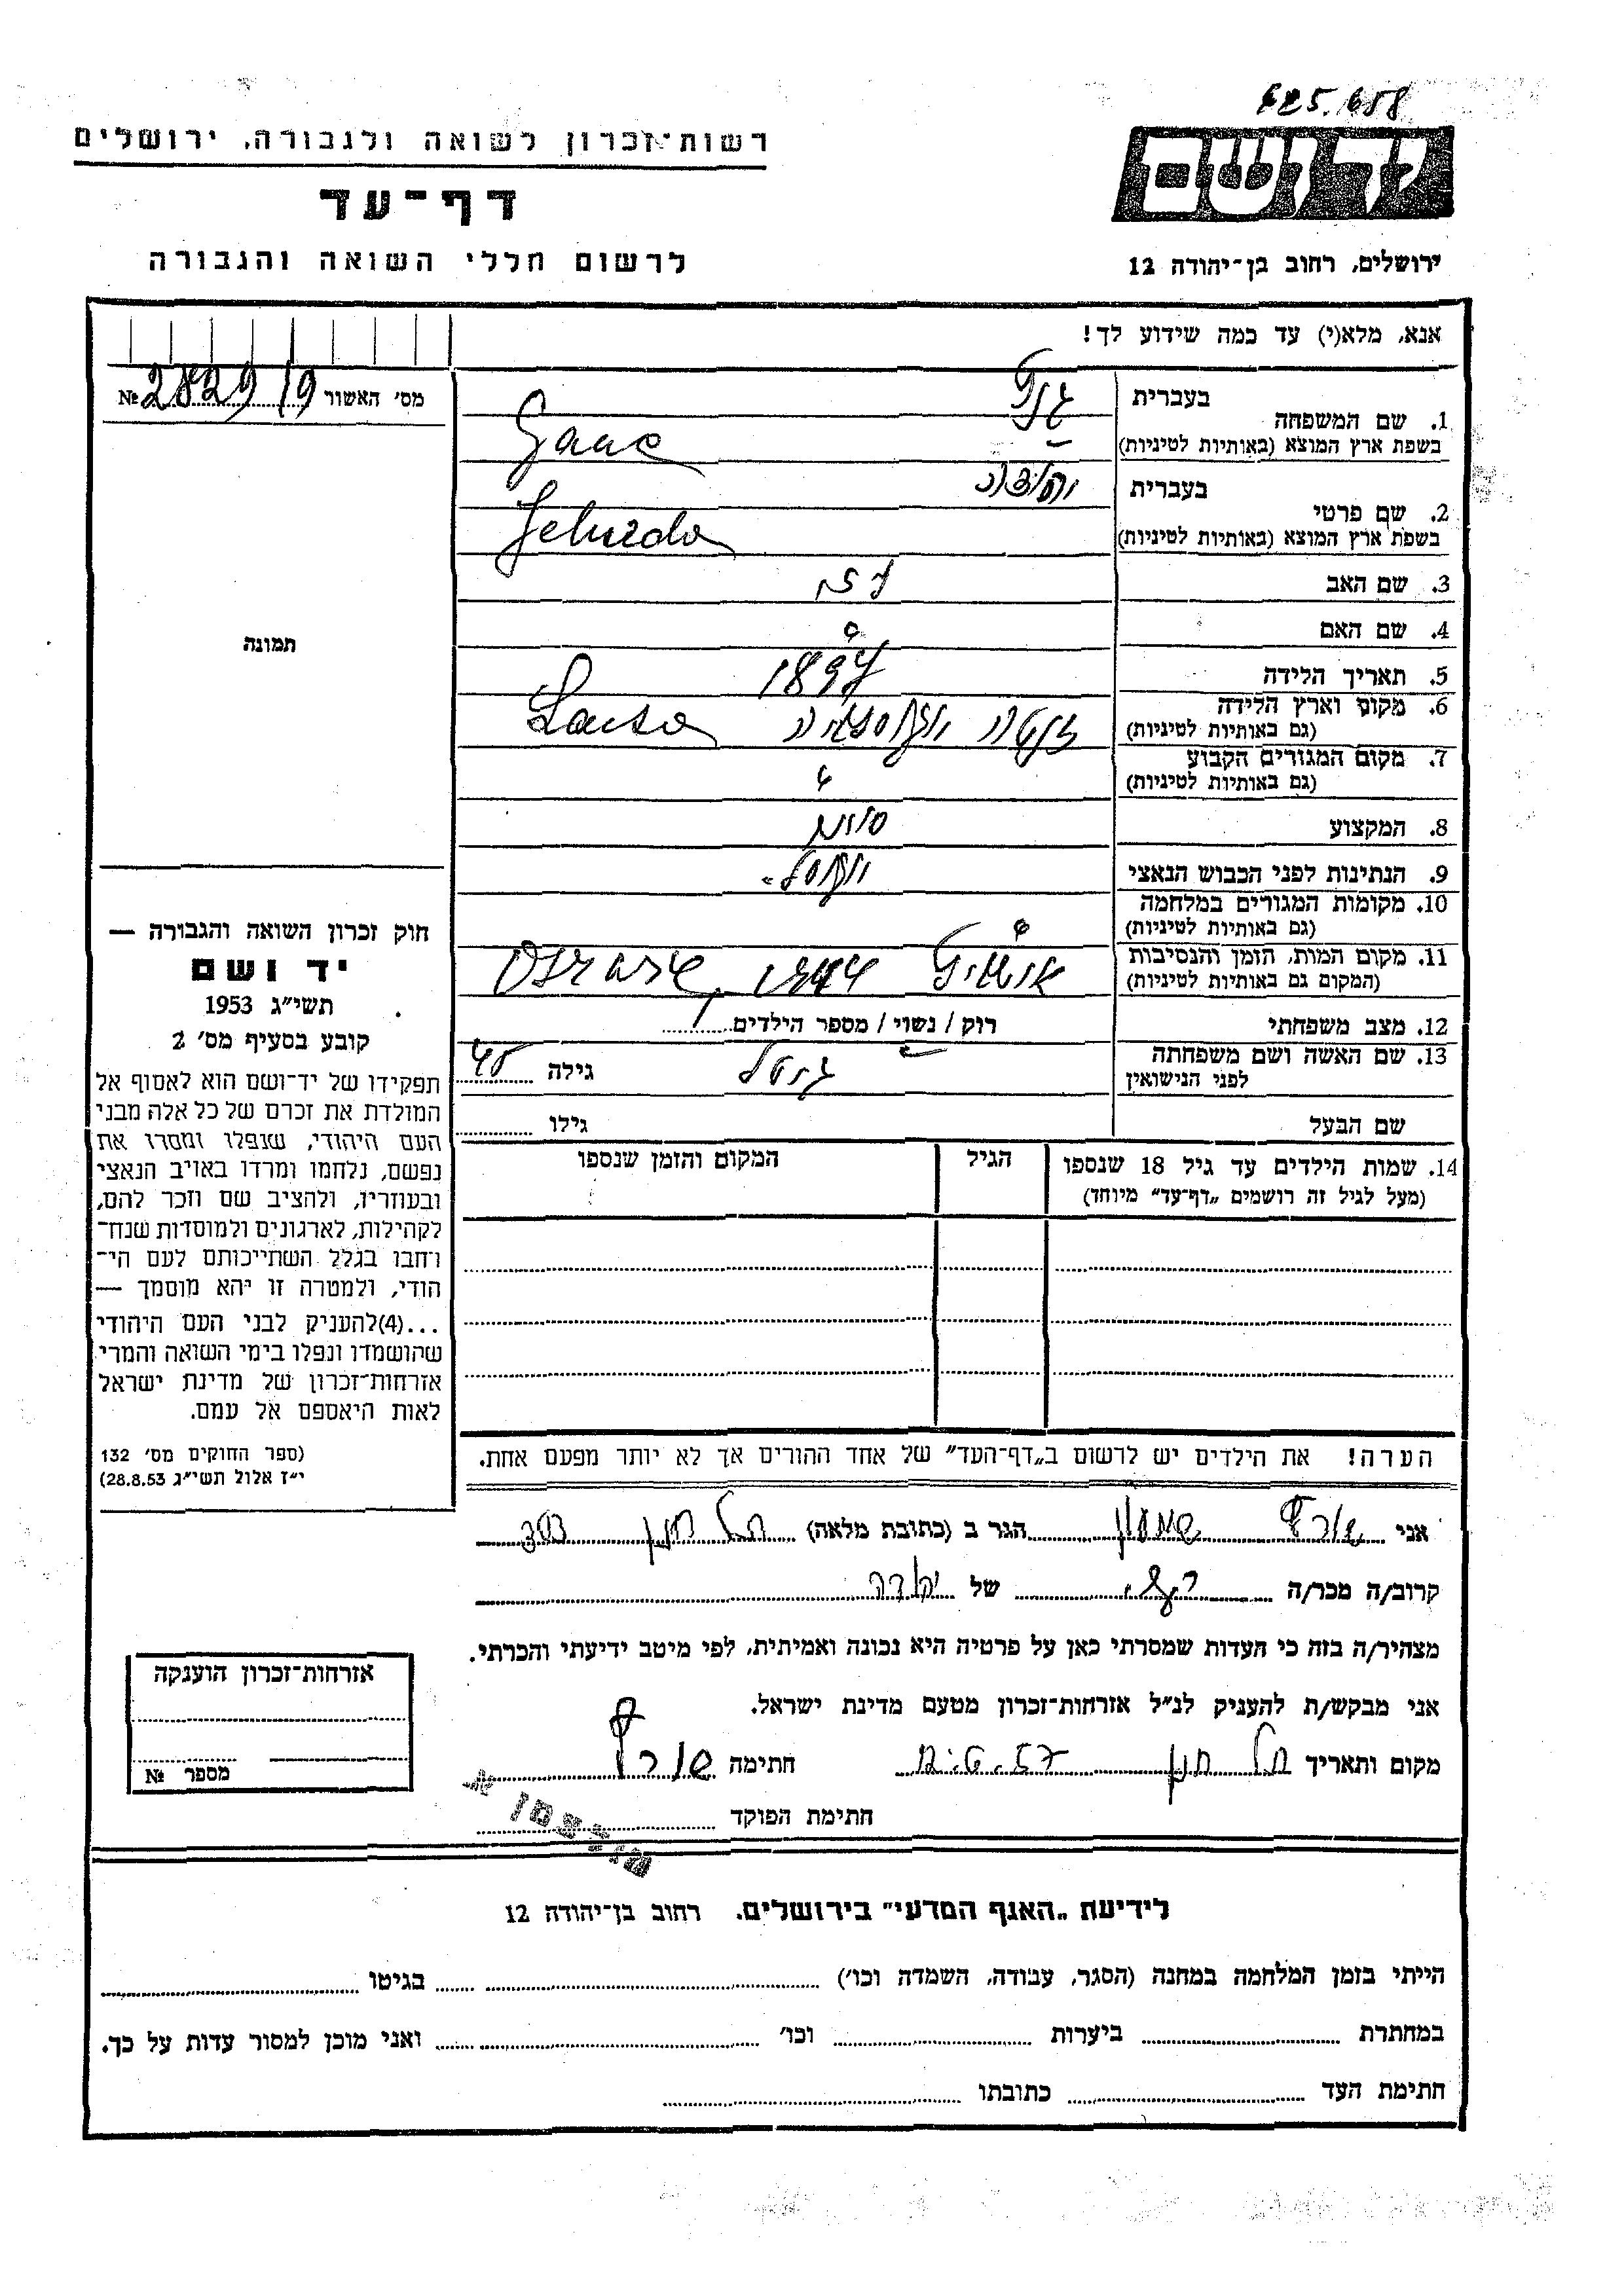 625.658
רשות-זכרון לשואה ולגבורה, ירושלים
דף-עד
לרשום חללי השואה והגבורה
יד ושם
ירושלים, רחוב בן-יהודה 12
אנא, מלא(י) עד כמה שידוע לך!
מס' האשור № 2829/9
1. שם המשפחה
בעברית
בשפת ארץ המוצא (באותיות לטיניות)
2. שם פרטי
בעברית יהודה
בשפת ארץ המוצא (באותיות לטיניות) Jehuda
3. שם האב
4. שם האם ?
5. תאריך הלידה 1897
6. מקום וארץ הלידה
(גם באותיות לטיניות)
7. מקום המגורים הקבוע
(גם באותיות לטיניות)
8. המקצוע סוחר
9. הנתינות לפני הכבוש הנאצי
10. מקומות המגורים במלחמה
(גם באותיות לטיניות) ?
11. מקום המות, הזמן והנסיבות
(המקום גם באותיות לטיניות)
12. מצב משפחתי רוק / נשוי / מספר הילדים
13. שם האשה ושם משפחתה
לפני הנישואין גילה 45
שם הבעל גילו
14. שמות הילדים עד גיל 18 שנספו הגיל המקום והזמן שנספו
(מעל לגיל זה רושמים „דף-עד" מיוחד)
הערה! את הילדים יש לרשום ב„דף-העד" של אחד ההורים אך לא יותר מפעם אחת.
תמונה
חוק זכרון השואה והגבורה —
יד ושם
תשי"ג 1953
קובע בסעיף מס' 2
תפקידו של יד-ושם הוא לאסוף אל
המולדת את זכרם של כל אלה מבני
העם היהודי, שנפלו ומסרו את
נפשם, נלחמו ומרדו באויב הנאצי
ובעוזריו, ולהציב שם וזכר להם,
לקהילות, לארגונים ולמוסדות שנח-
רחבו בגלל השתייכותם לעם הי-
הודי, ולמטרה זו יהא מוסמך —
...(4)להעניק לבני העם היהודי
שהושמדו ונפלו בימי השואה והמרי
אזרחות-זכרון של מדינת ישראל
לאות היאספם אל עמם.
(ספר החוקים מס' 132
י"ז אלול תשי"ג 28.8.53)
אני שורץ שמעון הגר ב (כתובת מלאה) תל חנן
קרוב/ה מכר/ה של יהודה
מצהיר/ה בזה כי העדות שמסרתי כאן על פרטיה היא נכונה ואמיתית, לפי מיטב ידיעתי והכרתי.
אני מבקש/ת להעניק לנ"ל אזרחות-זכרון מטעם מדינת ישראל.
מקום ותאריך תל חנן חתימה שורץ
חתימת הפוקד
אזרחות-זכרון הוענקה
מספר №
לידיעת „האגף המדעי" בירושלים. רחוב בן-יהודה 12
הייתי בזמן המלחמה במחנה (הסגר, עבודה, השמדה וכו') בגיטו
במחתרת ביערות וכו' ואני מוכן למסור עדות על כך.
חתימת העד כתובתו